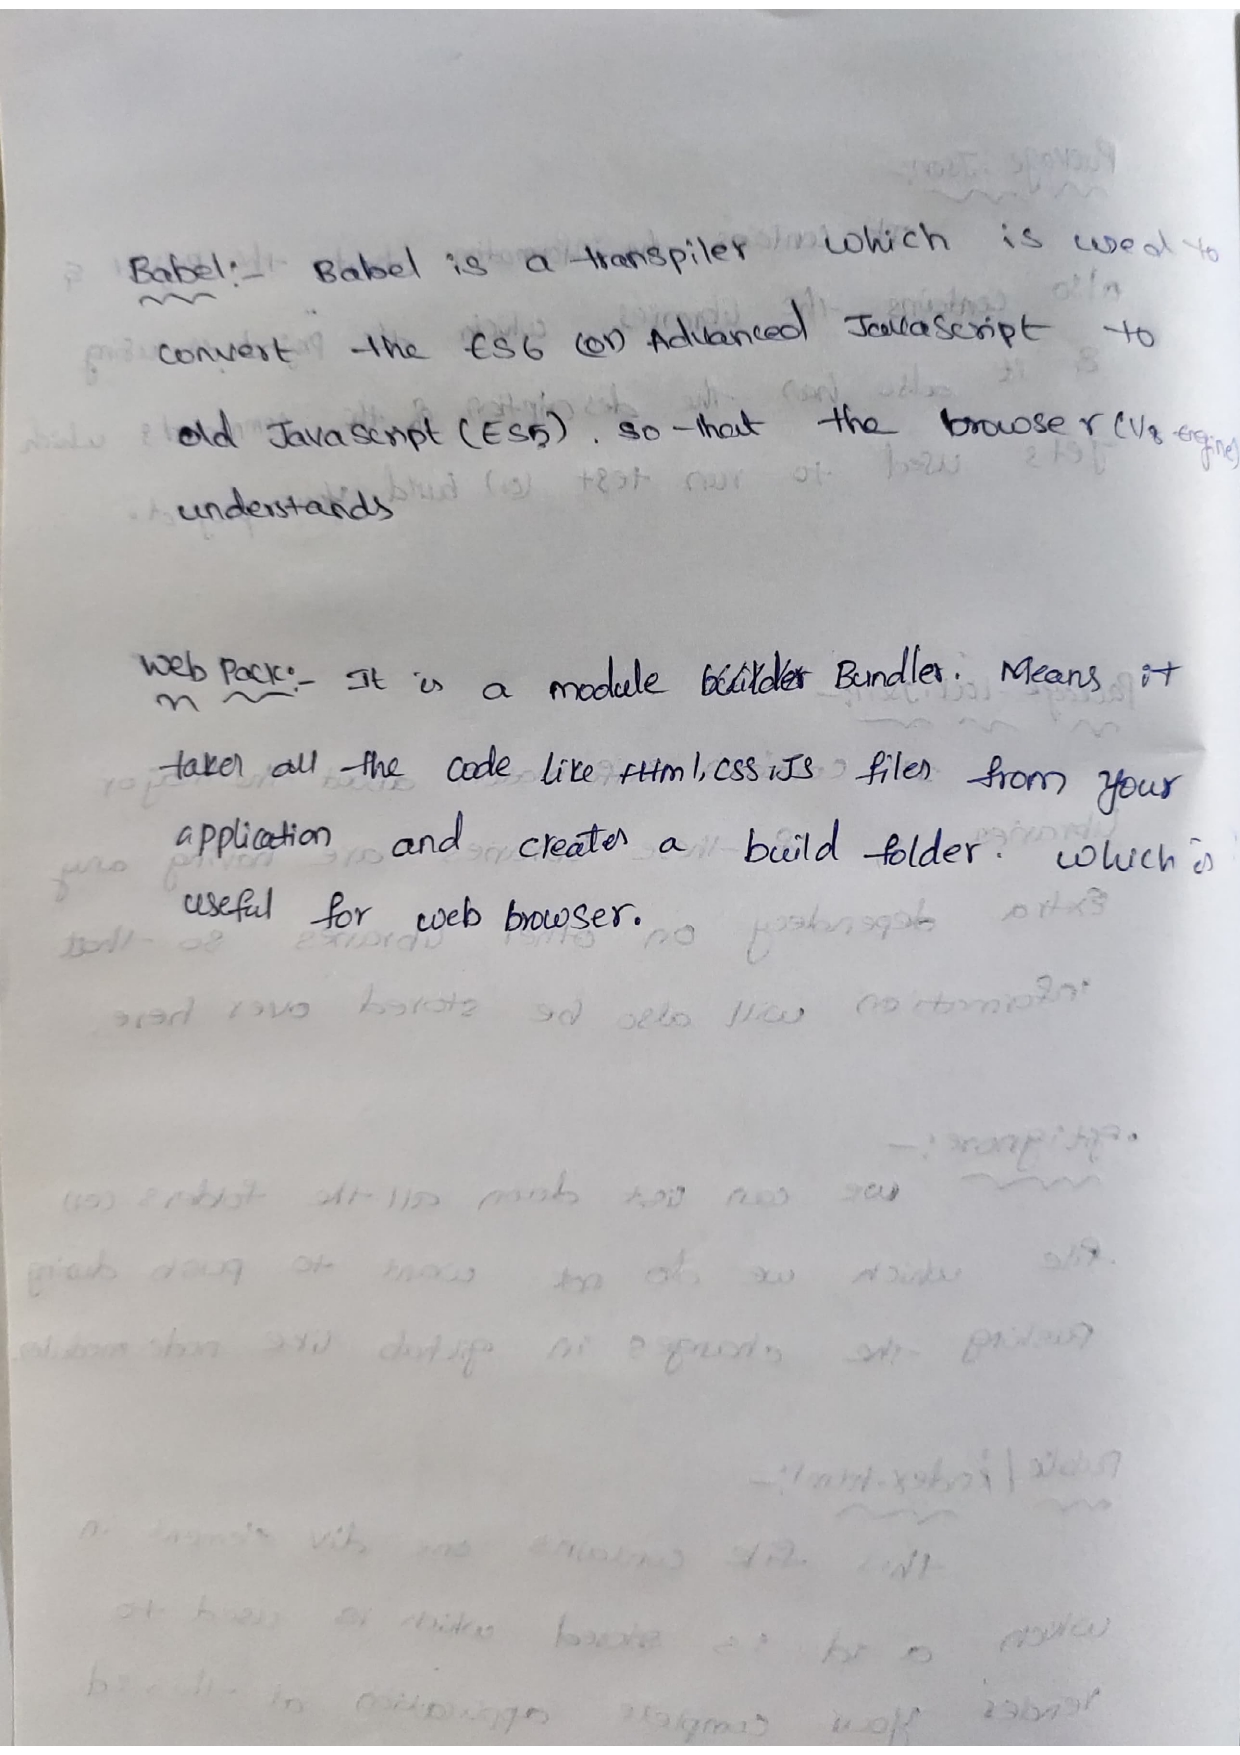 Babel:- Babel is a transpiler which is used to
convert the ES6 (or) Advanced JavaScript to
old Javascript (ES5). so that the browser (V8 engine)
understands
Web Pack:- It is a module builder Bundler. Means it
takes all the code like Html, CSS, JS files from your
application and creates a build folder. which is
useful for web browser.